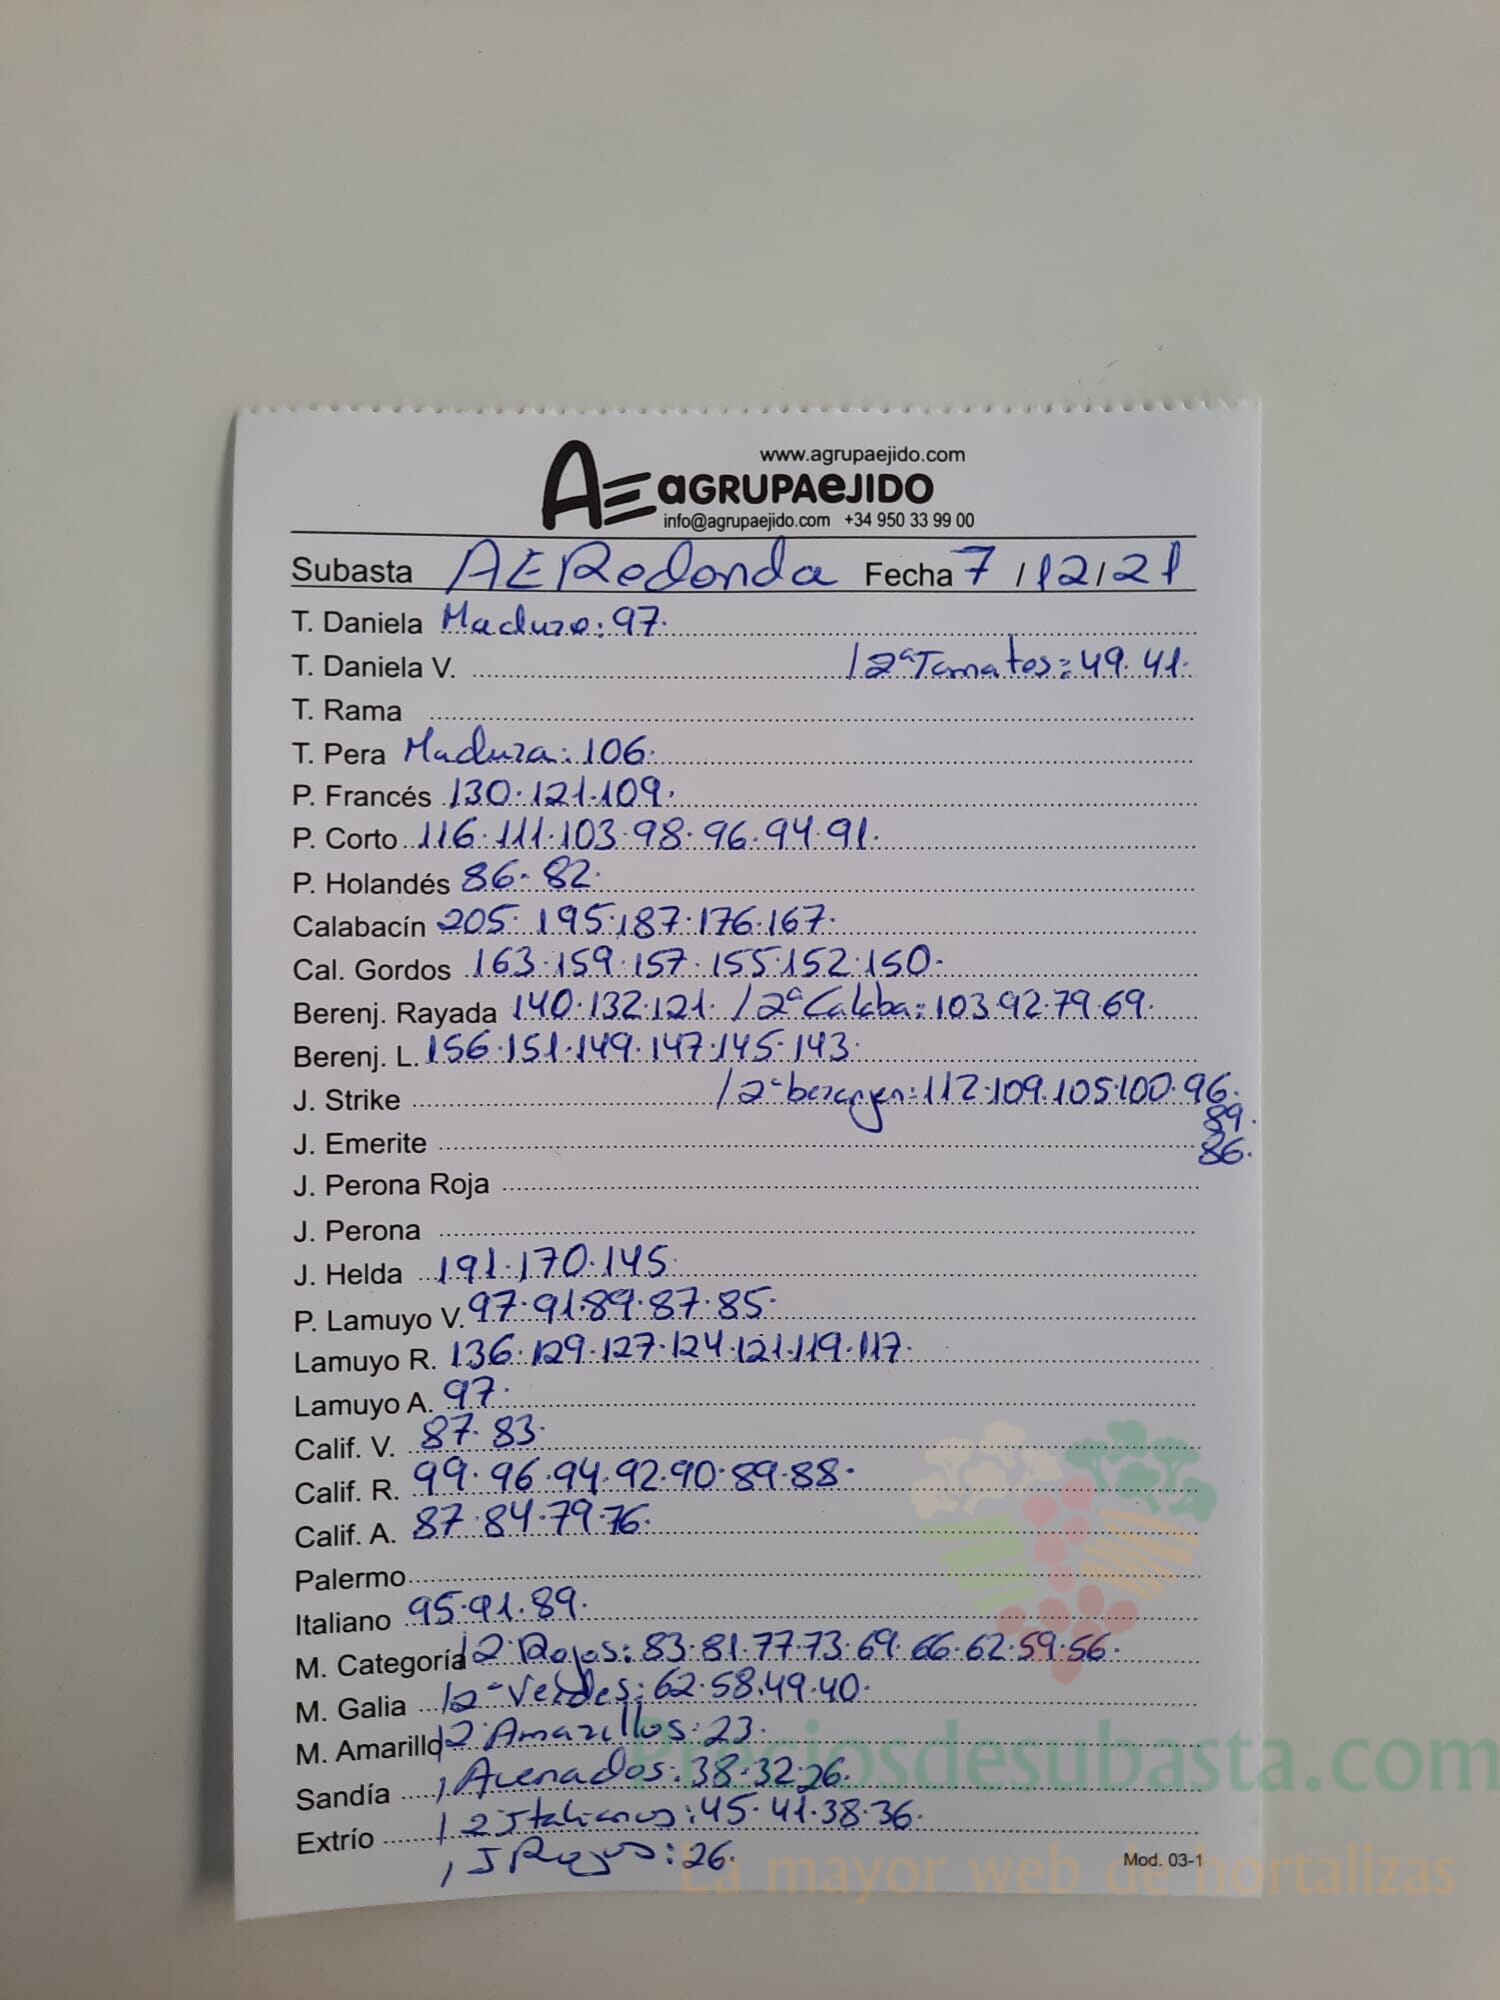 www.agrupaejido.com
AE aGRUPAeJIDO
info@agrupaejido.com +34 950 33 99 00
Subasta AE Redonda Fecha 7/12/21
T. Daniela Maduro: 97.
T. Daniela V. / 2ª Tomates: 49. 41.
T. Rama
T. Pera Madura: 106.
P. Francés 130. 121. 109.
P. Corto 116. 111. 103. 98. 96. 94. 91.
P. Holandés 86. 82.
Calabacín 205. 195. 187. 176. 167.
Cal. Gordos 163. 159. 157. 155. 152. 150.
Berenj. Rayada 140. 132. 121. / 2ª Calaba: 103. 92. 79. 69.
Berenj. L. 156. 151. 149. 147. 145. 143.
J. Strike / 2ª berenjen: 112. 109. 105. 100. 96.
89.
J. Emerite 86.
J. Perona Roja
J. Perona
J. Helda 191. 170. 145.
P. Lamuyo V. 97. 91. 89. 87. 85.
Lamuyo R. 136. 129. 127. 124. 121. 119. 117.
Lamuyo A. 97.
Calif. V. 87. 83.
Calif. R. 99. 96. 94. 92. 90. 89. 88.
Calif. A. 87. 84. 79. 76.
Palermo
Italiano 95. 91. 89.
M. Categoría / 2ª Rojos: 83. 81. 77. 73. 69. 66. 62. 59. 56.
M. Galia / 2ª Verdes: 62. 58. 49. 40.
M. Amarillo / 2ª Amarillos: 23.
Sandía / Asenados: 38. 32. 26.
Extrío / 2 Italianos: 45. 41. 38. 36.
/ J Rojos: 26.
Mod. 03-1
Preciosdesubasta.com
La mayor web de hortalizas